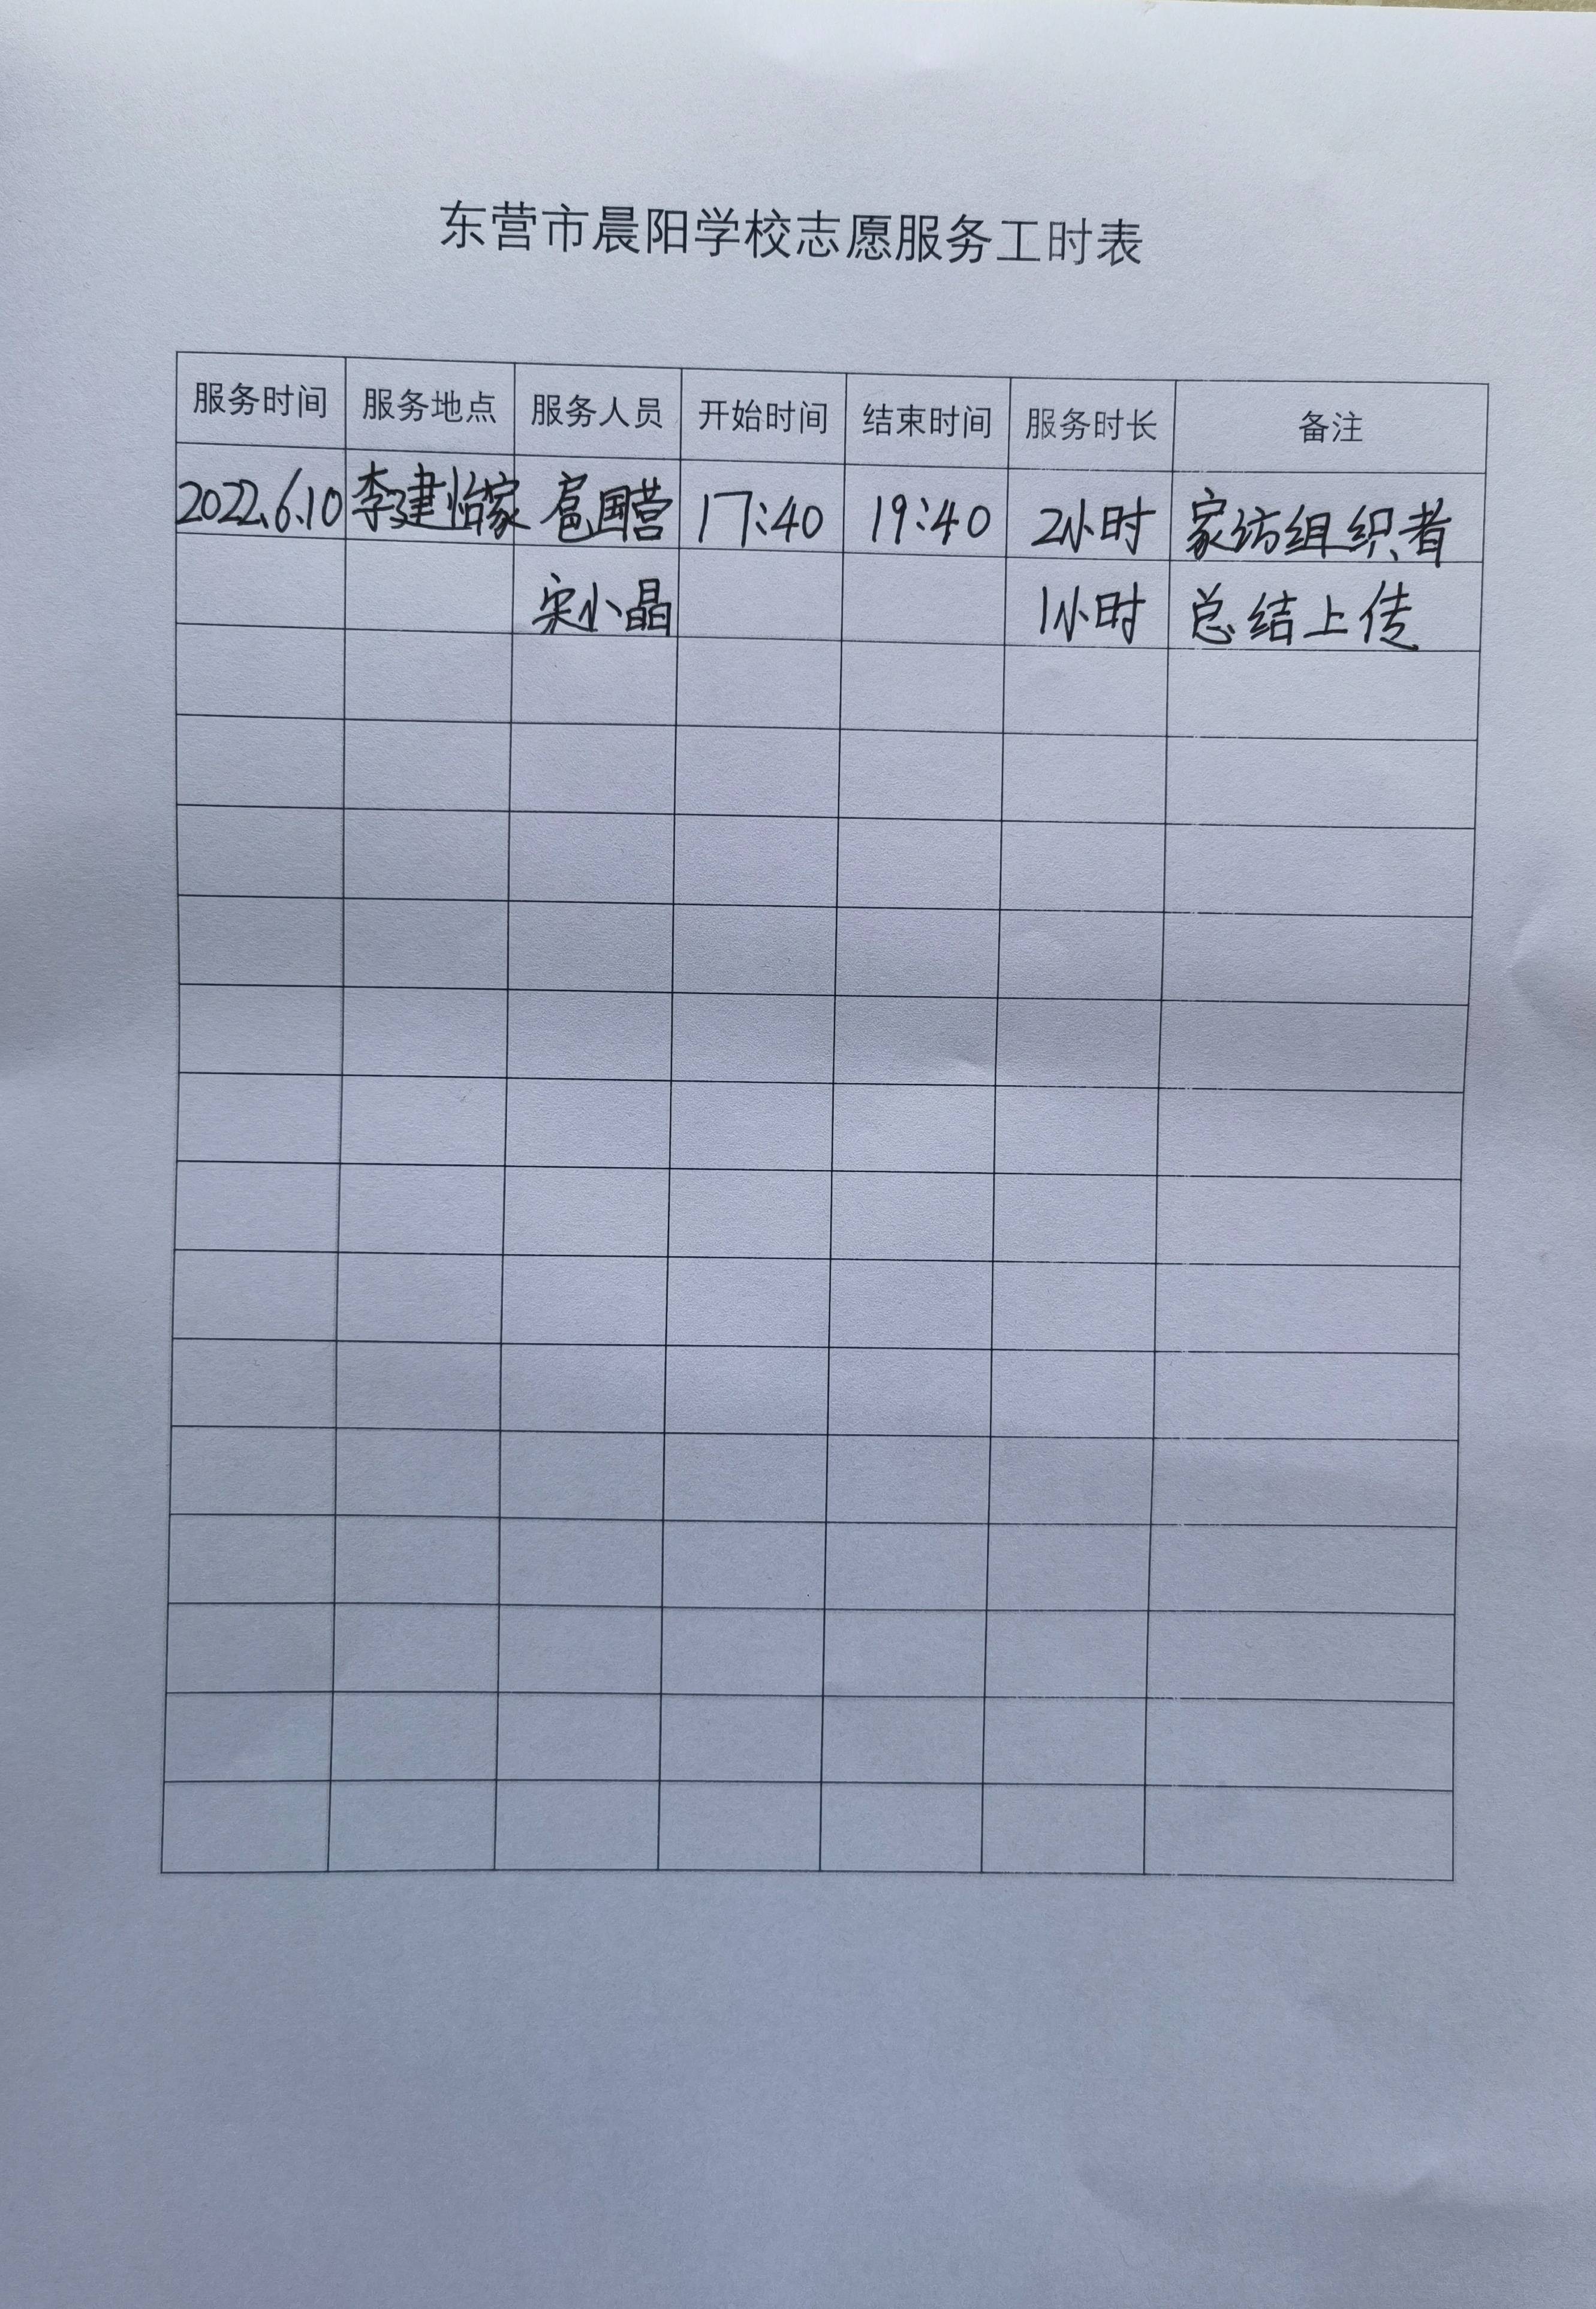 东营市晨阳学校志愿服务工时表
服务时间 服务地点 服务人员 开始时间 结束时间 服务时长 备注
2022.6.10 李建怡家 扈国营 17:40 19:40 2小时 家访组织者
宋小晶 1小时 总结上传